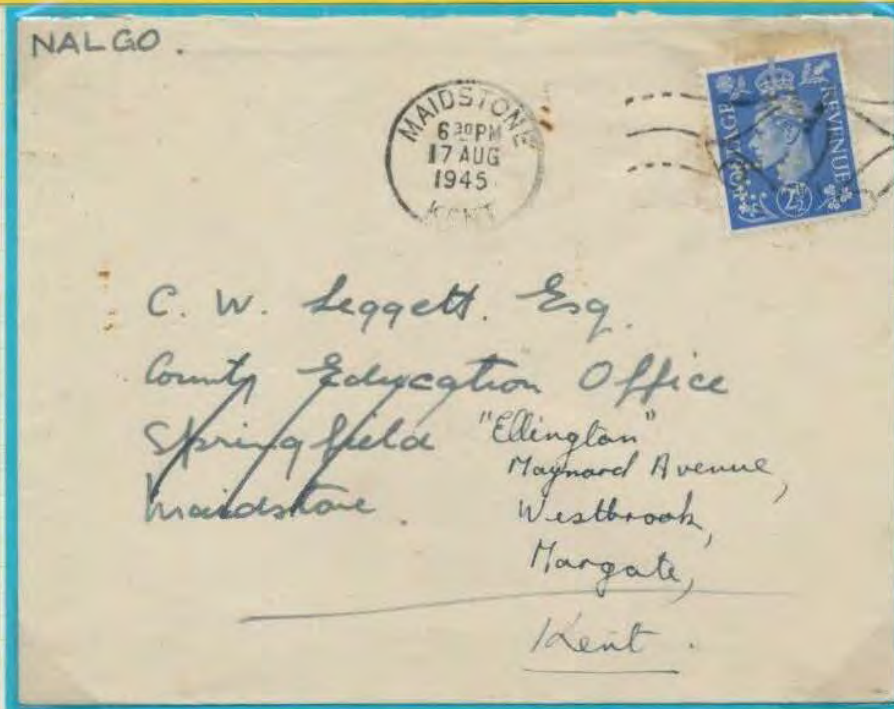 NALGO.
MAIDSTONE
6 30 PM
17 AUG
1945
KENT
POSTAGE
REVENUE
2½D
C. W. Leggett. Esq.
County Education Office
Springfield
Maidstone.
"Ellington"
Maynard Avenue,
Westbrook,
Margate,
Kent.